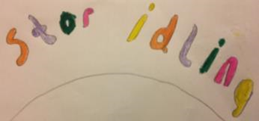 stor idling